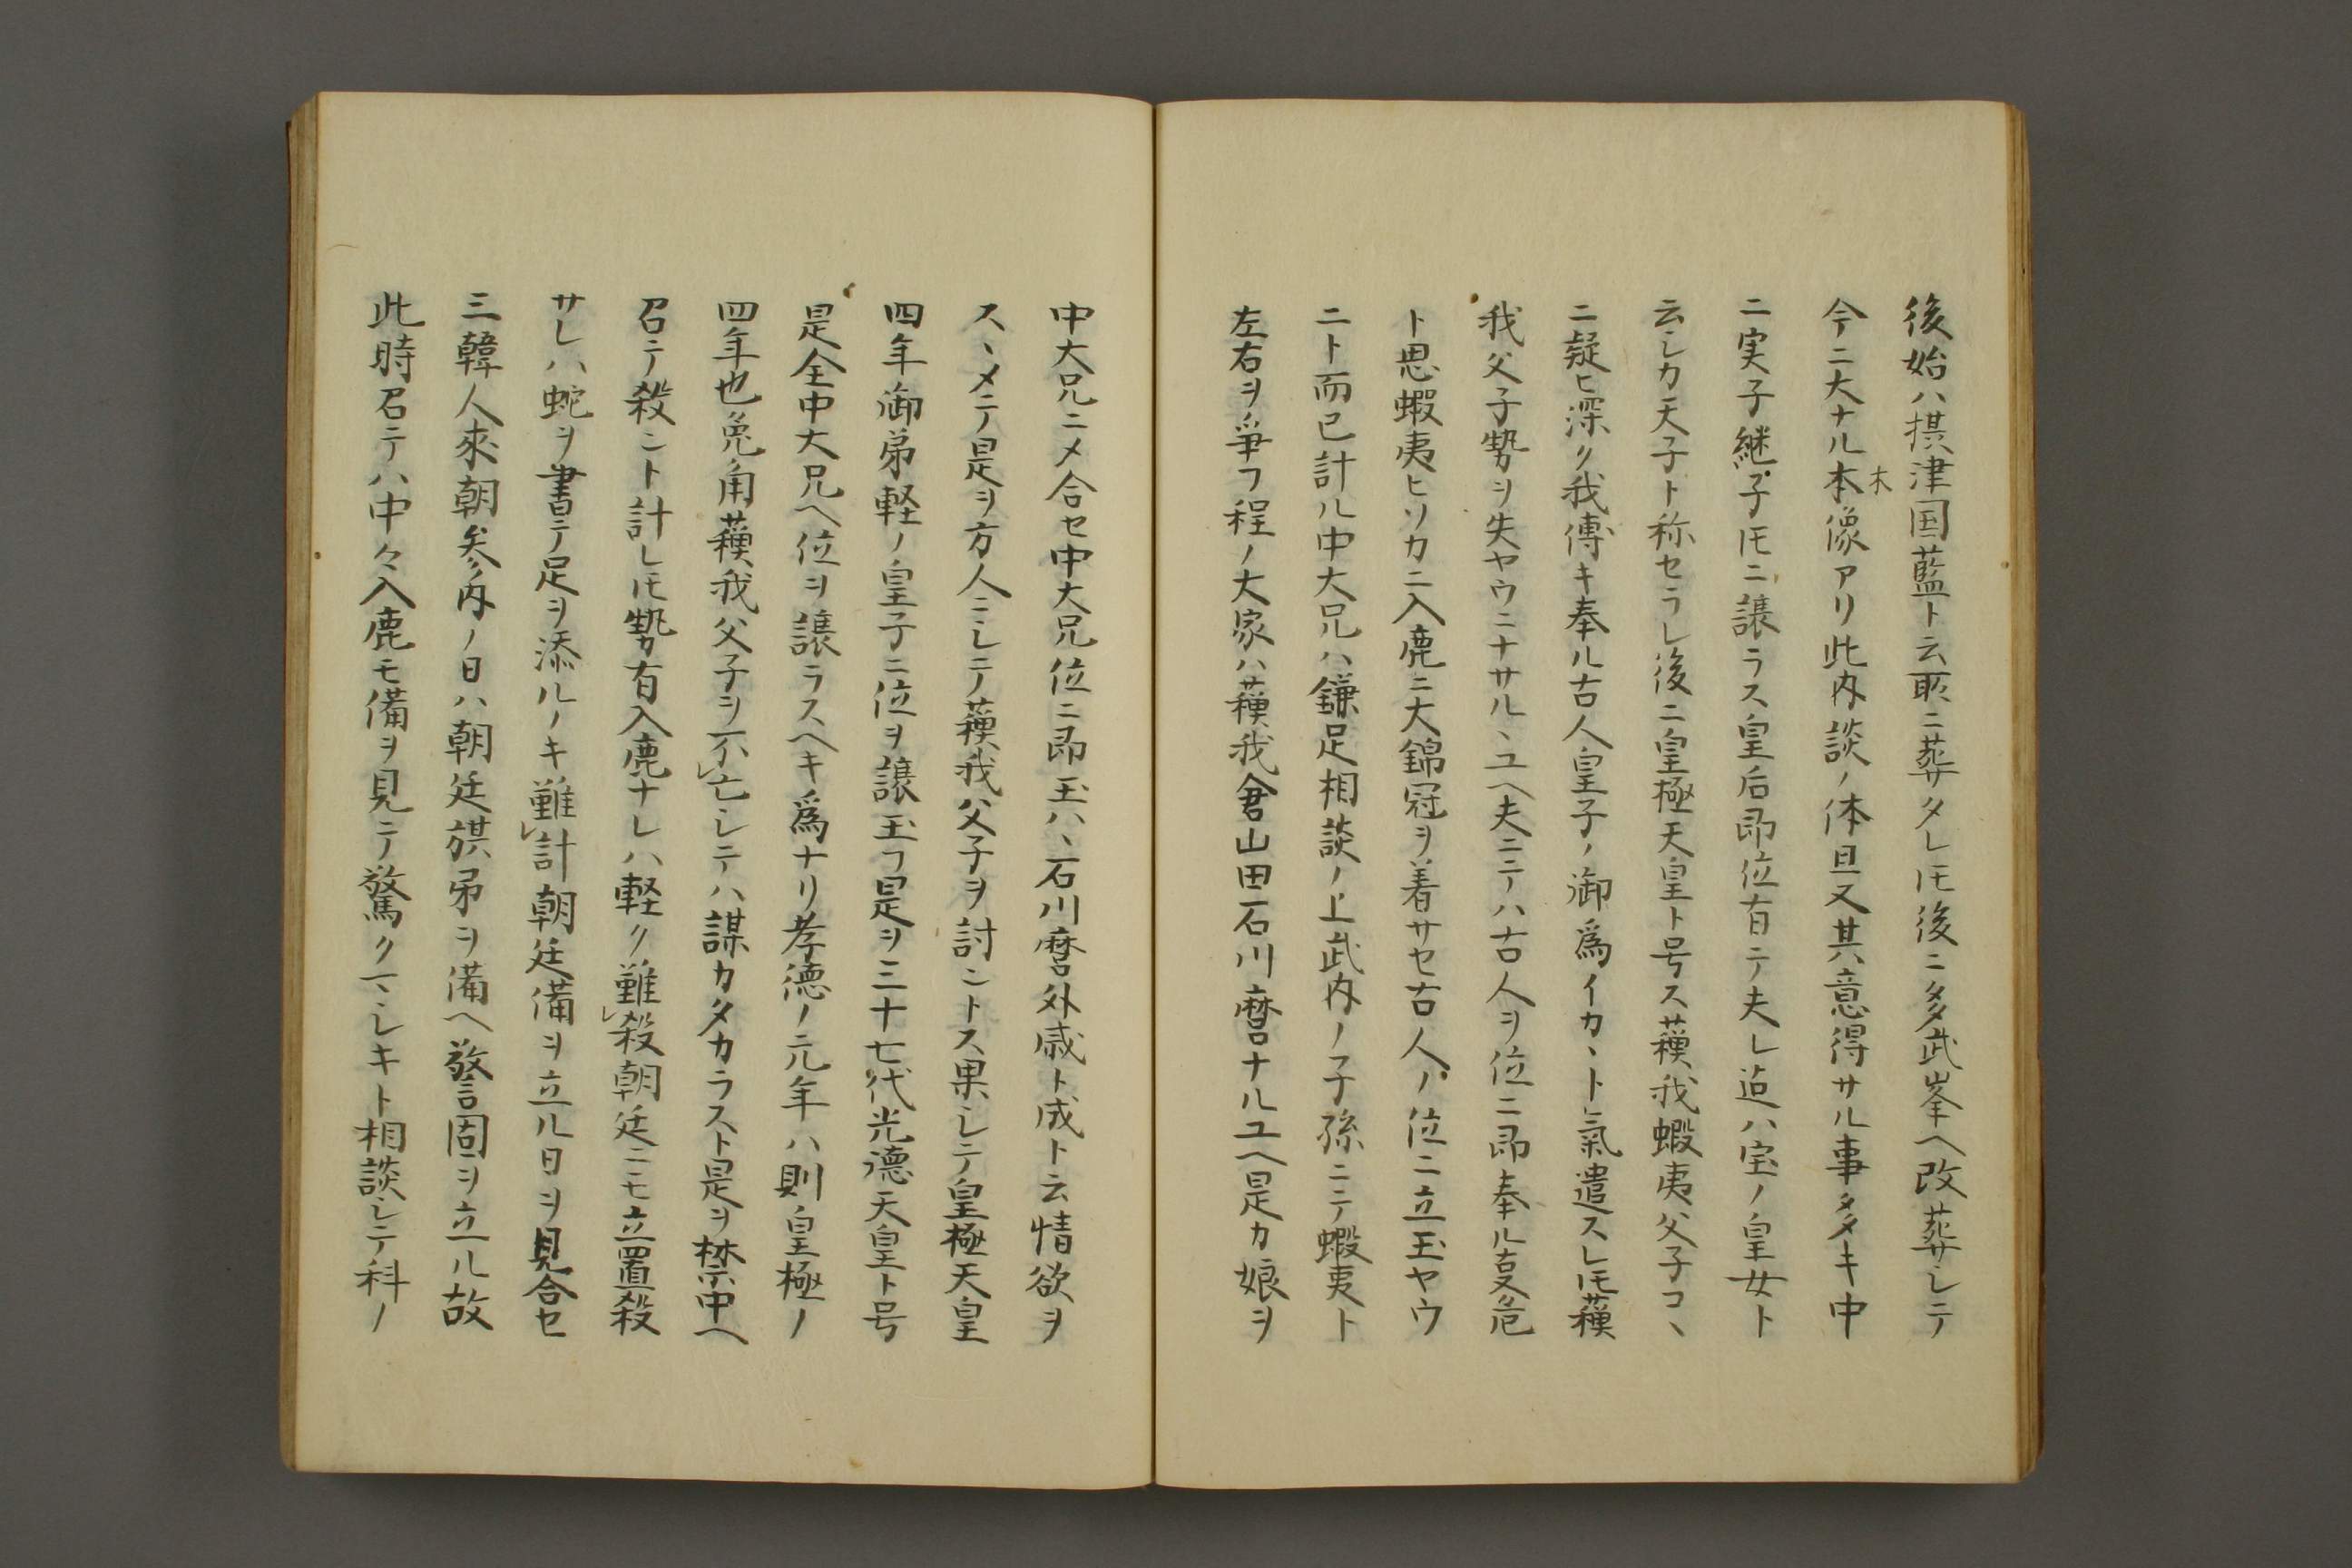 後始ハ摂津国藍ト云所ニ葬タレ𪜈後ニ多武峯ヘ改葬シテ
今ニ大ナル本像アリ此内談ノ体且又其意得サル事多キ中
木
ニ実子継子𪜈ニ譲ラス皇后即位有テ夫レ迠ハ宝ノ皇女ト
云シカ天子ト称セラレ後ニ皇極天皇ト号ス蘓我蝦夷父子コヽ
ニ疑ヒ深ク我傳キ奉ル古人皇子ノ御為イカヽト氣遣スレ𪜈蘓
我父子勢ヲ失ヤウニナサルヽユヘ夫ニテハ古人ヲ位ニ即奉ル叓危
ト思蝦夷ヒソカニ入鹿ニ大錦冠ヲ着サセ古人ノ位ニ立玉ヤウ
ニト而已計ル中大兄ハ鎌足相談ノ上武内ノ子孫ニテ蝦夷ト
左右ヲ爭フ程ノ大家ハ蘓我倉山田石川麿ナルユヘ是カ娘ヲ
中大兄ニメ合セ中大兄位ニ即玉ハヽ石川麿外戚ト成ト云情欲ヲ
スヽメテ是ヲ方人ニシテ蘓我父子ヲ討ントス果シテ皇極天皇
四年御弟軽ノ皇子ニ位ヲ譲玉フ是ヲ三十七代光德天皇ト号
是全中大兄ヘ位ヲ譲ラスヘキ爲ナリ孝德ノ元年ハ則皇極ノ
四年也兔角蘓我父子ヲ不レ亡シテハ謀カタカラスト是ヲ禁中ヘ
召テ殺ント計レ𪜈勢有入鹿ナレハ軽ク難レ殺朝廷ニモ立置殺
サレハ蛇ヲ書テ足ヲ添ルノキ難レ計朝廷備ヲ立ル日ヲ見合セ
三韓人來朝参内ノ日ハ朝廷旗弟ヲ備ヘ警固ヲ立ル故
此時召テハ中々入鹿モ備ヲ見テ驚クマシキト相談シテ科ノ